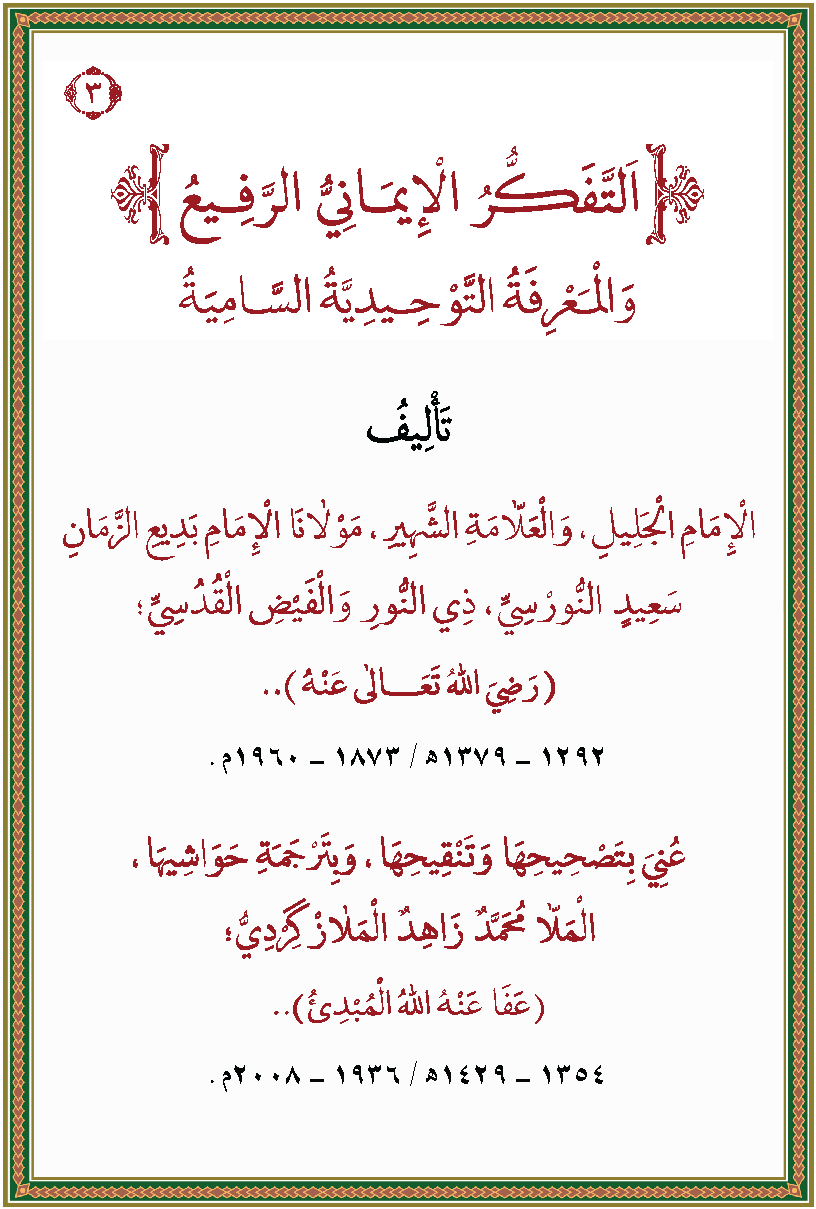 ٣
اَلتَّفَكُّرُ الْإِيمَانِيُّ الرَّفِيعُ
وَالْمَعْرِفَةُ التَّوْحِيدِيَّةُ السَّامِيَةُ
تَأْلِيفُ
الْإِمَامِ الْجَلِيلِ، وَالْعَلَّامَةِ الشَّهِيرِ، مَوْلَانَا الْإِمَامِ بَدِيعِ الزَّمَانِ
سَعِيدٍ النُّورْسِيِّ، ذِي النُّورِ وَالْفَيْضِ الْقُدُسِيِّ؛
(رَضِيَ اللهُ تَعَالٰى عَنْهُ)..
١٢٩٢ – ١٣٧٩ه‍ / ١٨٧٣ – ١٩٦٠م.
عُنِيَ بِتَصْحِيحِهَا وَتَنْقِيحِهَا، وَبِتَرْجَمَةِ حَوَاشِيهَا،
الْمَلَّا مُحَمَّدٌ زَاهِدٌ الْمَلَازْگِرْدِيُّ؛
(عَفَا عَنْهُ اللهُ الْمُبْدِئُ)..
١٣٥٤ – ١٤٢٩ه‍ / ١٩٣٦ – ٢٠٠٨م.